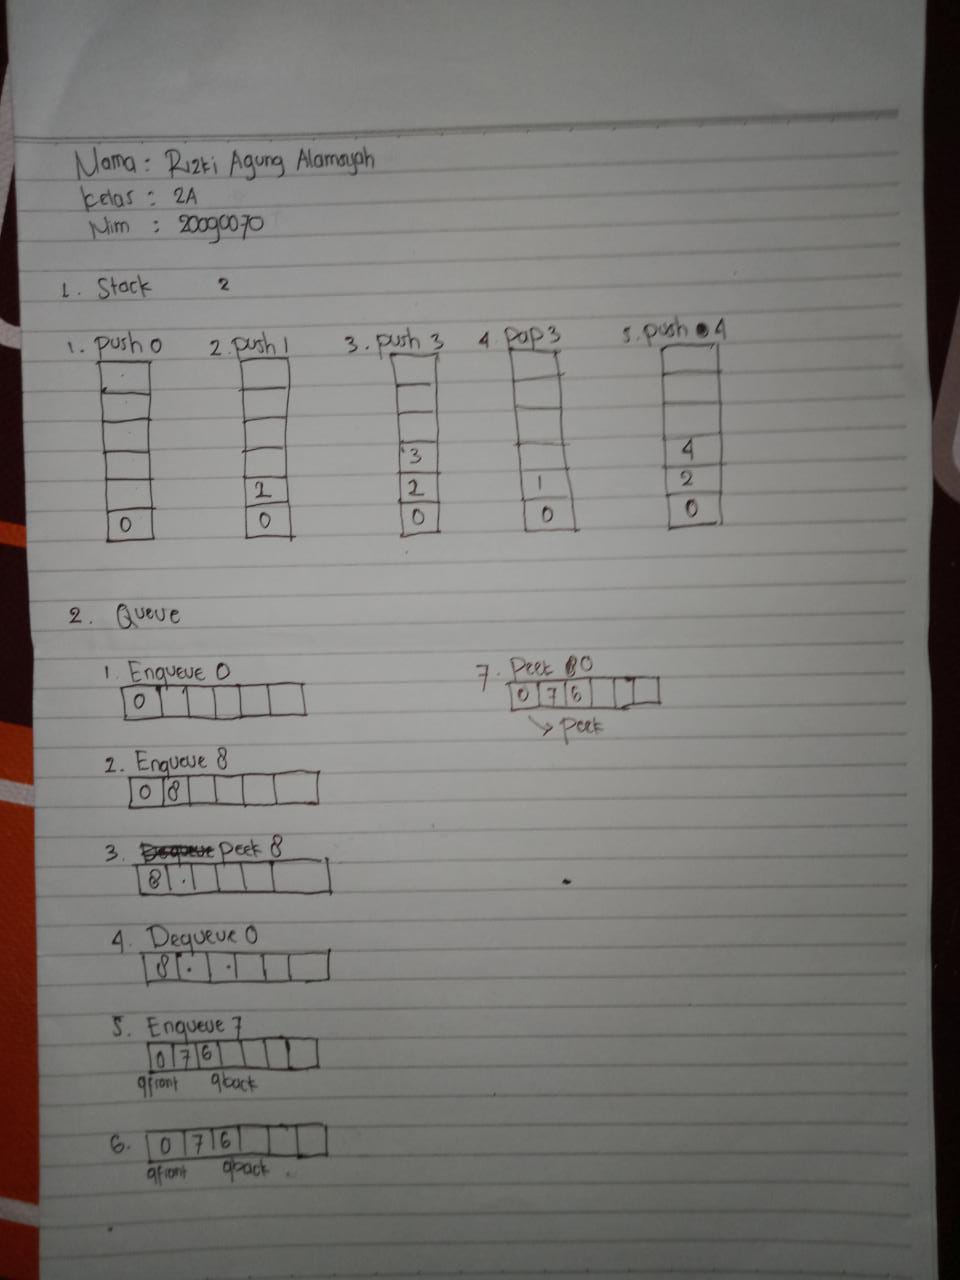 Nama : Rizki Agung Alamsyah
Kelas : 2A
Nim : 20090070
1. Stack 2
1. push 0 2. push 1 3. push 3 4. pop 3 5. push 4
3 4
2 2 1 2
0 0 0 0 0
2. Queue
1. Enqueue 0
0
2. Enqueue 8
0 8
3. peek 8
8
4. Dequeue 0
8
5. Enqueue 7
0 7 6
qfront qback
6. 0 7 6
qfront qback
7. Peek 0
0 7 6
peek